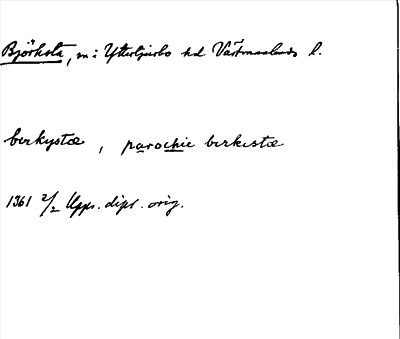 Björksta, sn i Yttertjurbo hd Västmanlands l.
birkystæ, parochie birkistæ
1361 2/2 Upps. dipl. orig.